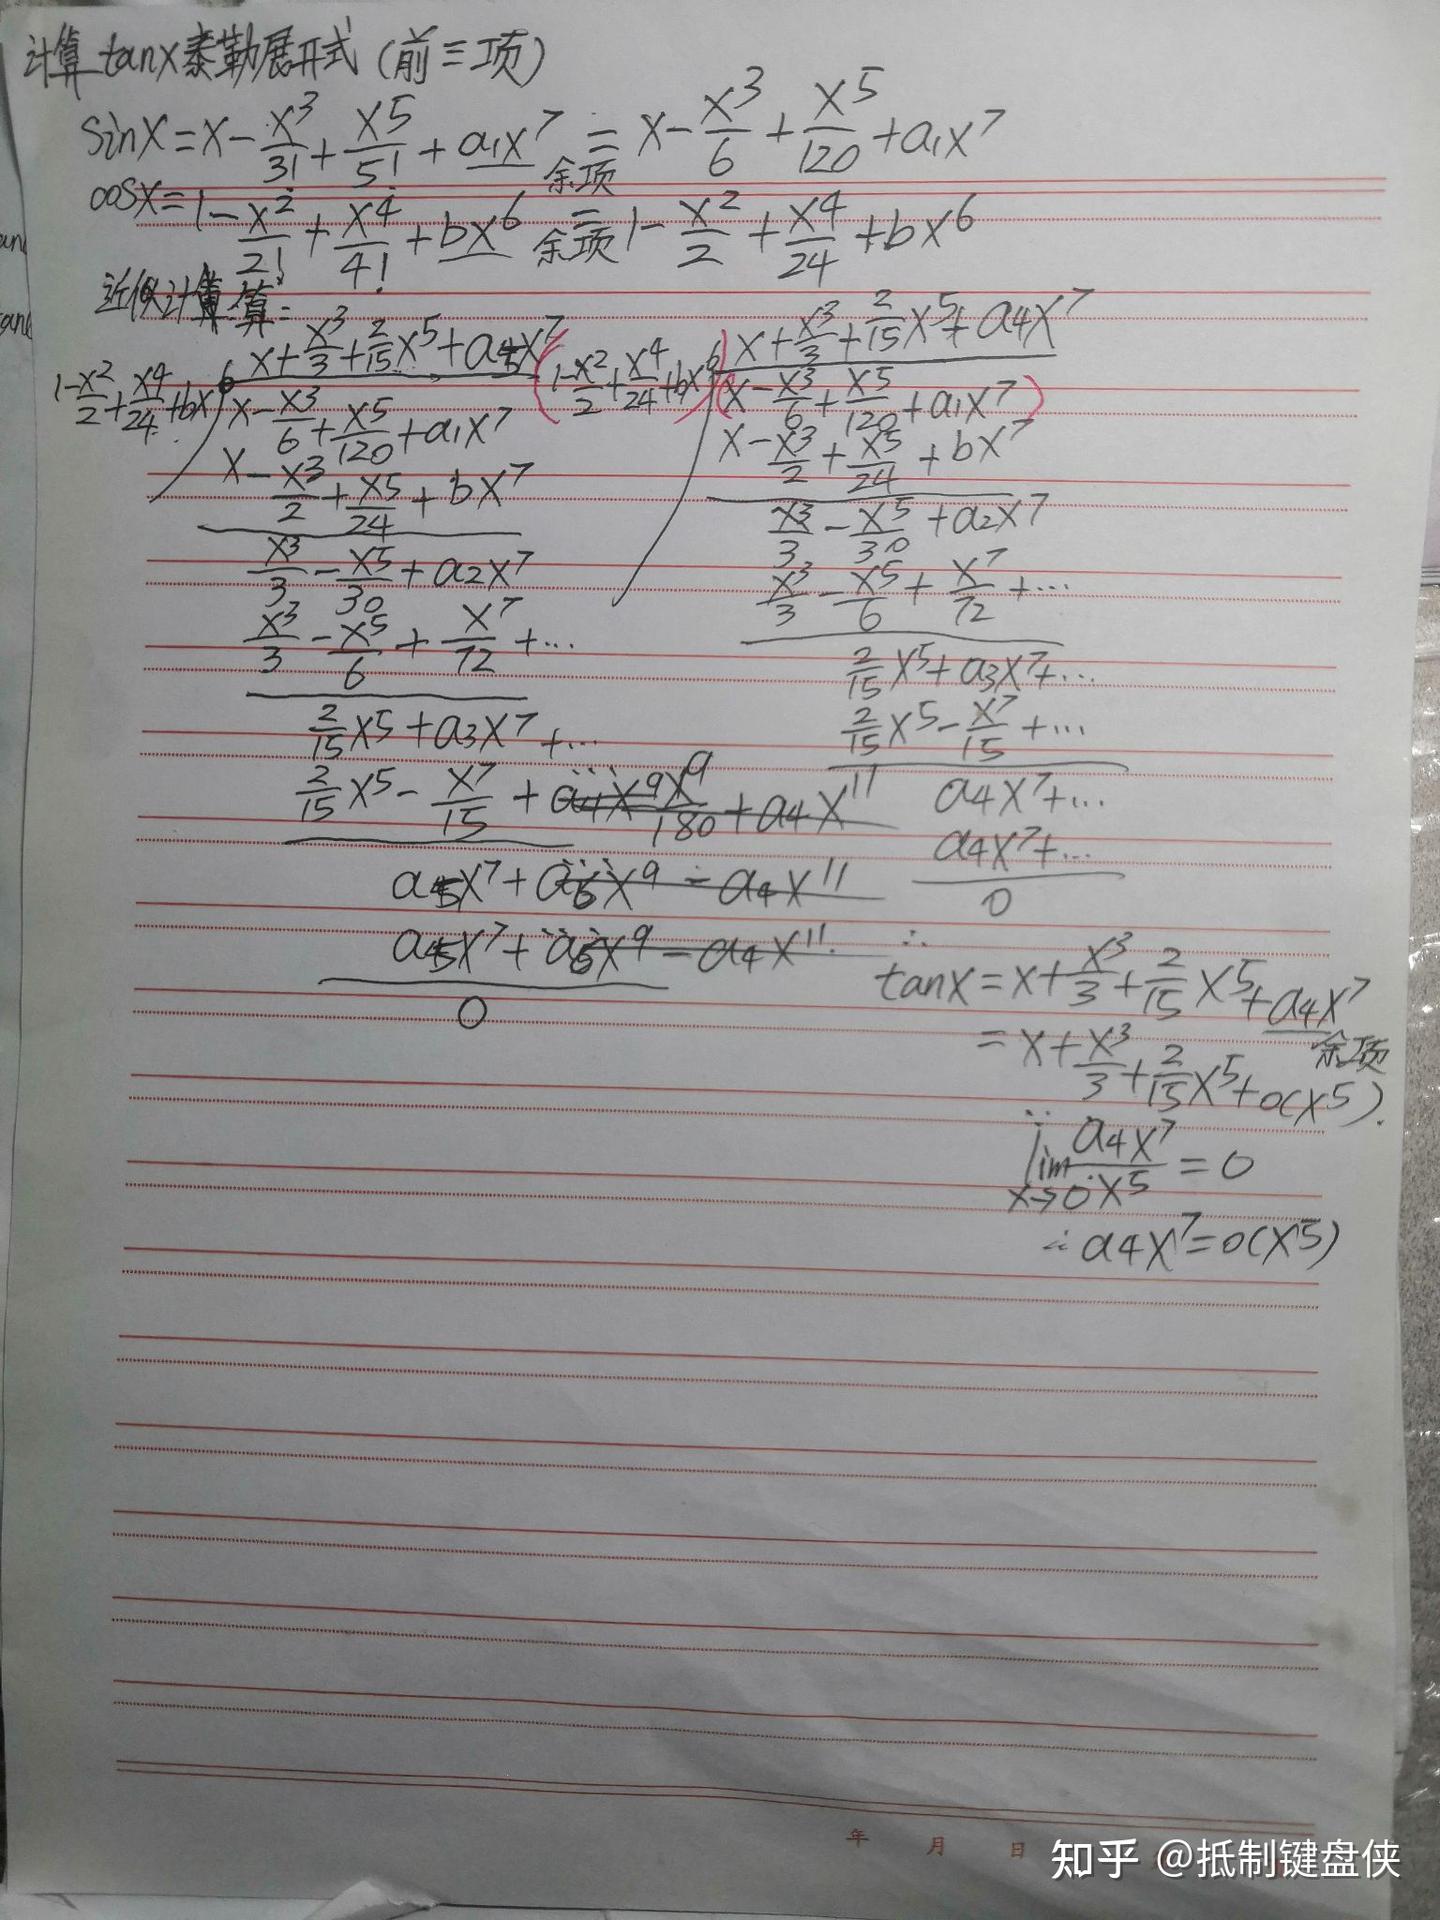 计算tanx泰勒展开式(前三项)
sinx=x-x³/3!+x⁵/5!+a₁x⁷=x-x³/6+x⁵/120+a₁x⁷
余项
cosx=1-x²/2!+x⁴/4!+bx⁶=1-x²/2+x⁴/24+bx⁶
余项
近似计算:
x+x³/3+2/15x⁵+a₄x⁷
1-x²/2+x⁴/24+bx⁶
x-x³/6+x⁵/120+a₁x⁷
x-x³/2+x⁵/24+bx⁷
x³/3-x⁵/30+a₂x⁷
x³/3-x⁵/6+x⁷/72+…
2/15x⁵+a₃x⁷+…
2/15x⁵-x⁷/15+
a₅x⁷+
a₅x⁷+
0
x+x³/3+2/15x⁵+a₄x⁷
(1-x²/2+x⁴/24+bx⁶)
(x-x³/6+x⁵/120+a₁x⁷)
x-x³/2+x⁵/24+bx⁷
x³/3-x⁵/30+a₂x⁷
x³/3-x⁵/6+x⁷/72+…
2/15x⁵+a₃x⁷+…
2/15x⁵-x⁷/15+…
a₄x⁷+…
a₄x⁷+…
0
∴
tanx=x+x³/3+2/15x⁵+a₄x⁷
余项
=x+x³/3+2/15x⁵+o(x⁵).
∵
lim x→0 a₄x⁷/x⁵=0
∴a₄x⁷=o(x⁵)
年 月 日
知乎 @抵制键盘侠